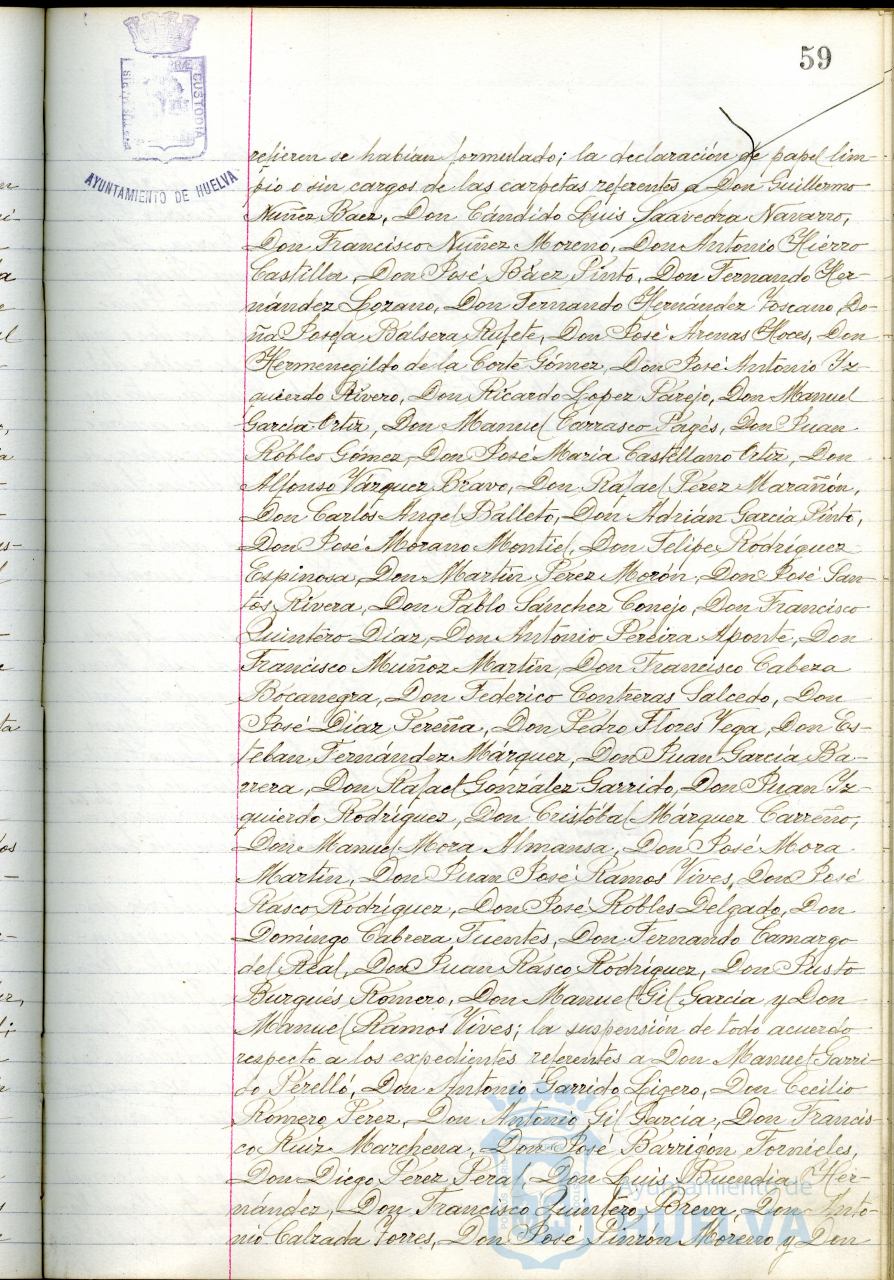 59
CUSTODIA
AYUNTAMIENTO DE HUELVA
refieren se habían formulado; la declaración de papel lim-
pio o sin cargos de las carpetas referentes a Don Guillermo
Núñez Baez, Don Cándido Luis Saavedra Navarro,
Don Francisco Nuñez Moreno, Don Antonio Hierro
Castilla, Don José Báez Pinto, Don Fernando Her-
nández Lozano, Don Fernando Hernández Toscano, Do-
ña Josefa Balsera Rufete, Don José Arenas Hoces, Don
Hermenegildo de la Corte Gómez, Don José Antonio Iz-
quierdo Rivero, Don Ricardo Lopez Parejo, Don Manuel
García Ortiz, Don Manuel Carrasco Pagés, Don Juan
Robles Gómez, Don José María Castellano Ortiz, Don
Alfonso Vázquez Bravo, Don Rafael Pérez Marañón,
Don Carlos Angel Balleto, Don Adrián García Pinto,
Don José Morano Montiel, Don Felipe Rodríguez
Espinosa, Don Martín Pérez Morón, Don José San-
tos Rivera, Don Pablo Sánchez Conejo, Don Francisco
Quintero Díaz, Don Antonio Pereira Aponte, Don
Francisco Muñoz Martín, Don Francisco Cabeza
Bocanegra, Don Federico Contreras Salcedo, Don
José Díaz Pereña, Don Pedro Flores Vega, Don Es-
teban Fernández Márquez, Don Juan García Ba-
rrera, Don Rafael González Garrido, Don Juan Iz-
quierdo Rodríguez, Don Cristóbal Márquez Carreño,
Don Manuel Mora Almansa, Don José Mora
Martín, Don Juan José Ramos Vives, Don José
Rasco Rodríguez, Don José Robles Delgado, Don
Domingo Cabrera Fuentes, Don Fernando Camargo
del Real, Don Juan Rasco Rodríguez, Don Justo
Burgués Romero, Don Manuel Gil García y Don
Manuel Ramos Vives; la suspensión de todo acuerdo
respecto a los expedientes referentes a Don Manuel Garri-
do Perelló, Don Antonio Garrido Ligero, Don Cecilio
Romero Pérez, Don Antonio Gil García, Don Francis-
co Ruiz Marchena, Don José Barrigón Fornieles,
Don Diego Pérez Peral, Don Luis Buendia Her-
nández, Don Francisco Quintero Breva, Don Anto-
nio Calzada Torres, Don José Pinzón Moreno y Don
Ayuntamiento de
HUELVA